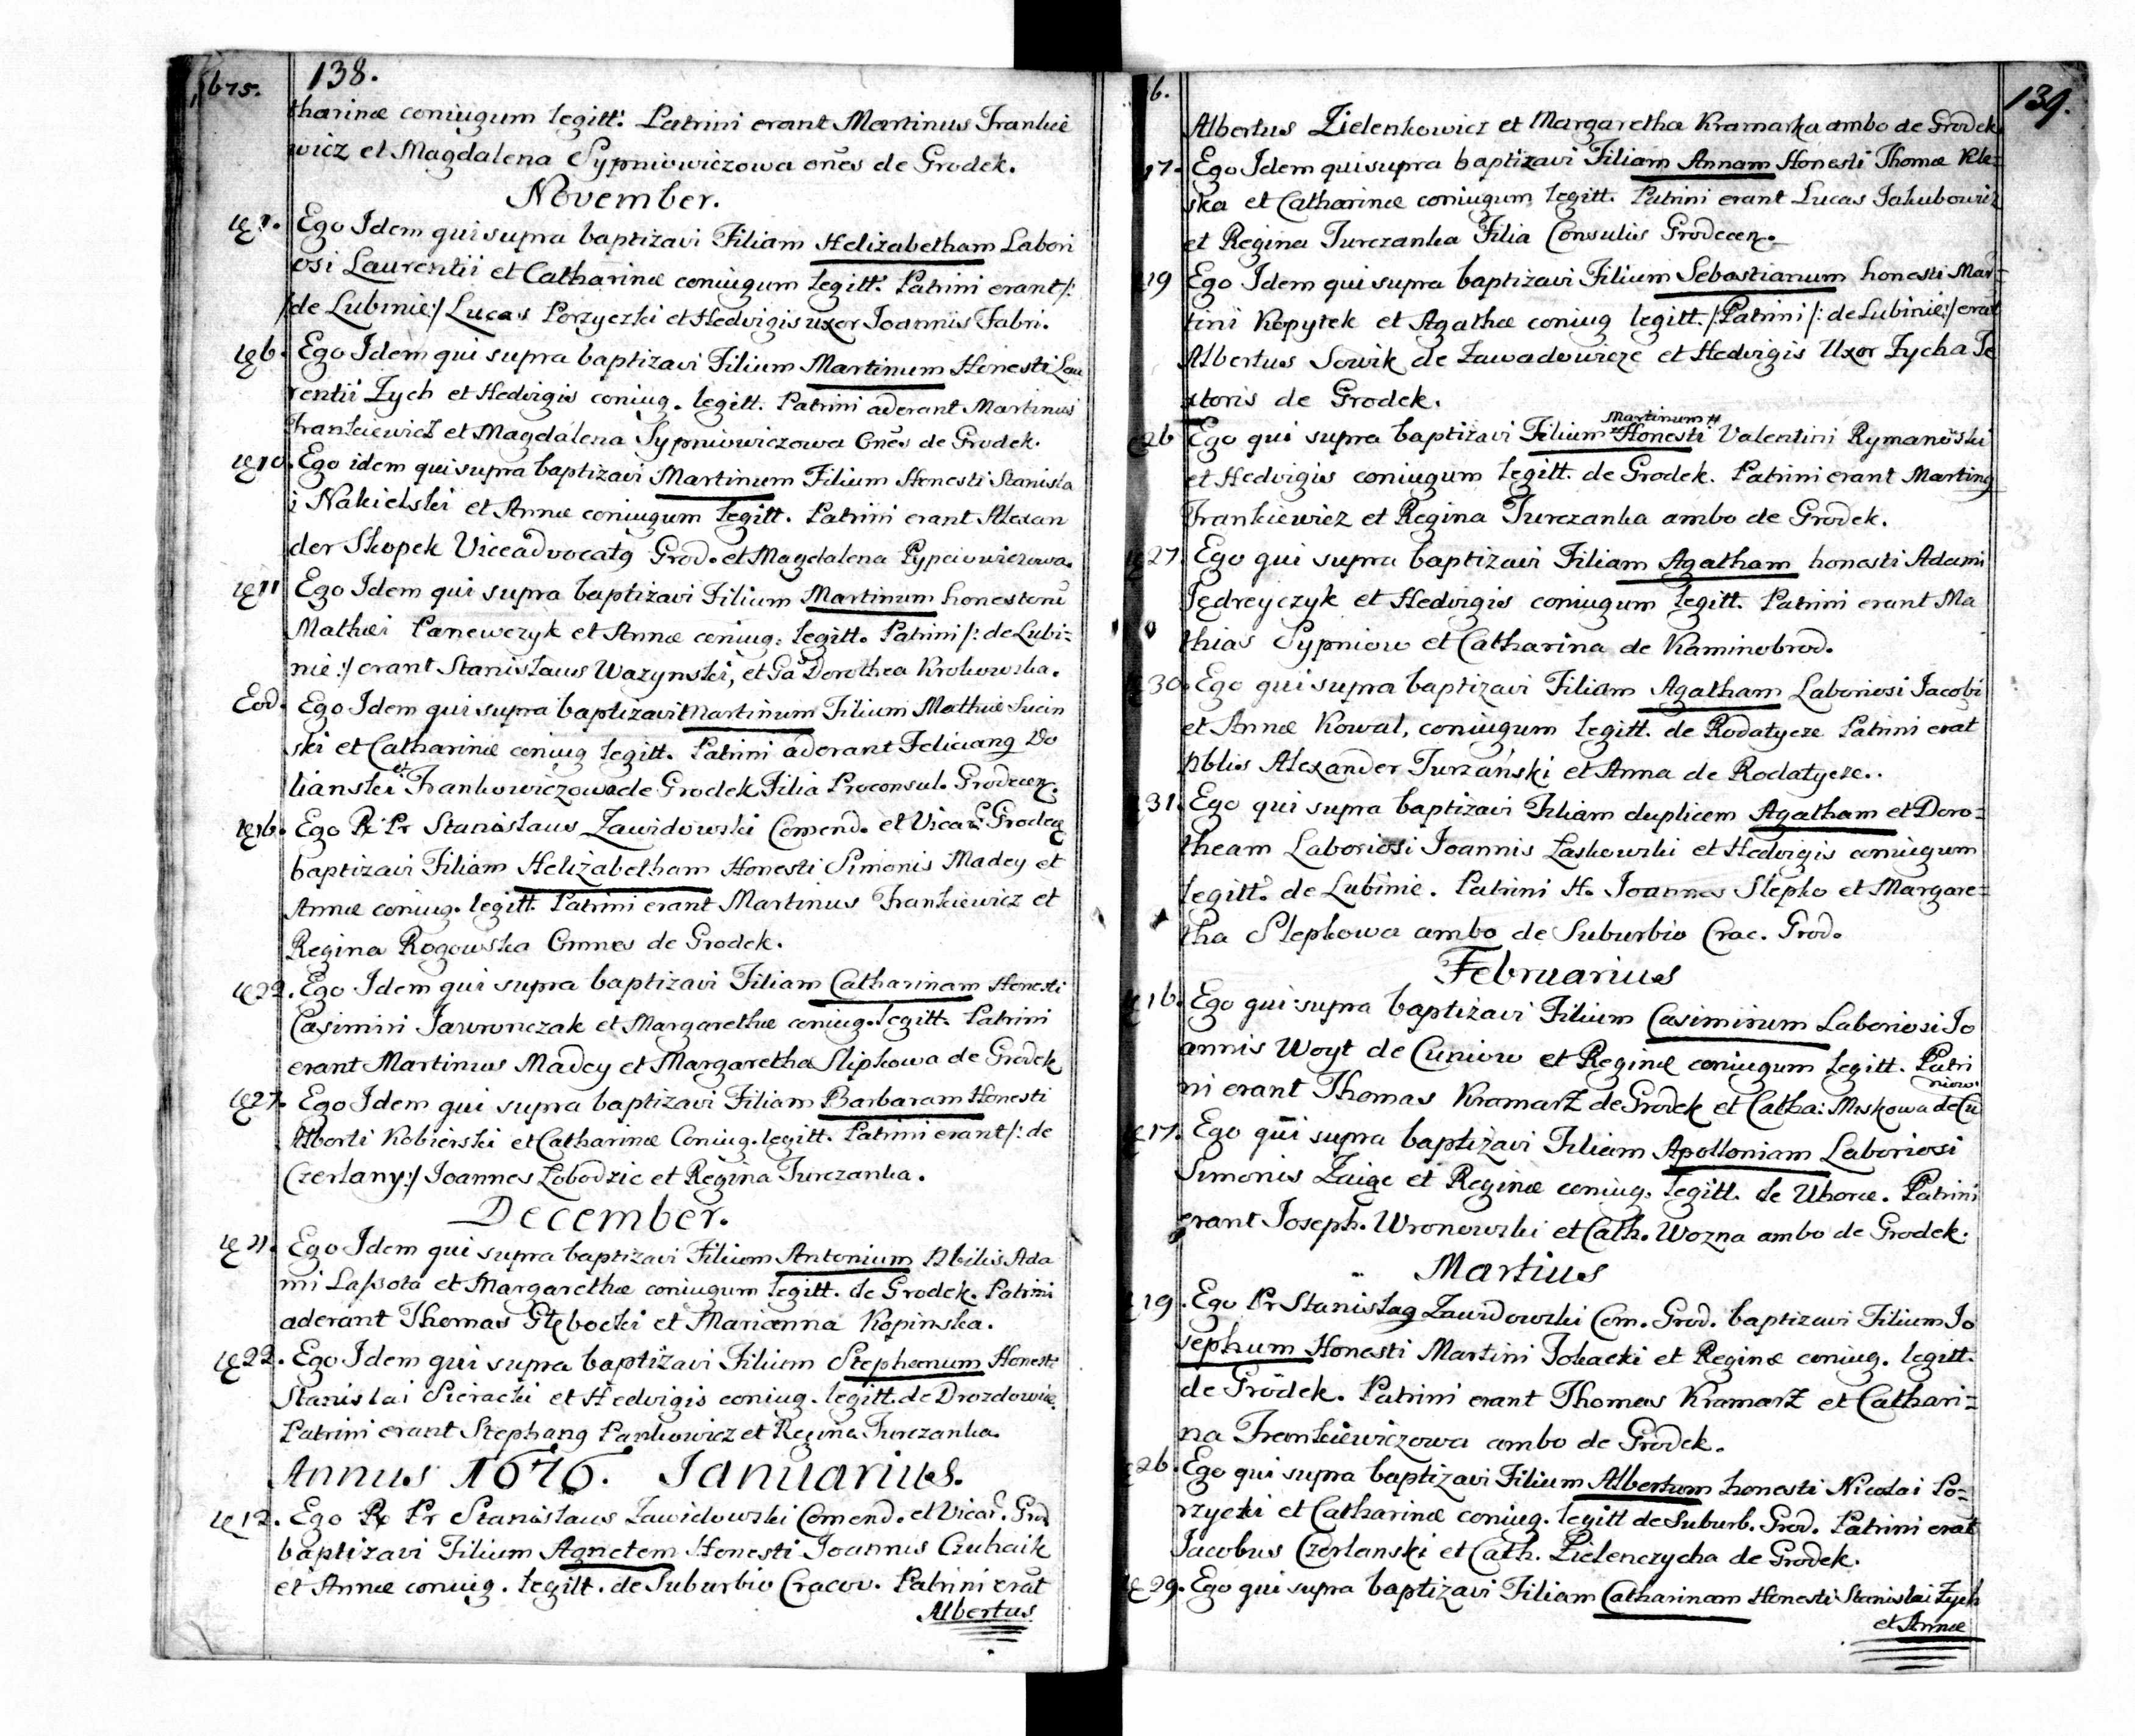 1675. 138.
tharinæ coniugum legitt: Patrini erant Martinus Frankie
wicz et Magdalena Sypniowiczowa oñes de Grodek.
November.
Ego Idem qui supra baptizavi Filiam Helizabetham Labori
osi Laurentii et Catharinæ coniugum legitt: Patrini erant/:
/de Lubinie:/ Lucas Porzycki et Hedvigis uxor Joannis Fabri.
6. Ego Idem qui supra baptizavi Filium Martinum Honesti Lau
rentii Zych et Hedvigis coniug. legitt. Patrini aderant Martinus
Frankiewicz et Magdalena Sypniowiczowa Oñes de Grodek.
10. Ego idem qui supra baptizavi Martinum Filium Honesti Stanisla
i Nakielski et Annæ coniugum legitt. Patrini erant Alexan
der Skopek Viceadvocatg Grod. et Magdalena Pypciowiczowa.
11 Ego Idem qui supra baptizavi Filium Martinum honestorū
Mathæi Panewczyk et Annæ coniug: legitt. Patrini /: de Lubi=
nie:/ erant Stanislaus Wazynski, et Ga Dorothea Krokowska.
Eod. Ego Idem qui supra baptizavit Martinum Filium Mathiæ Sucin
ski et Catharinæ coniug legitt. Patrini aderant Feliciang Do
lianski et Frankowiczowa de Grodek Filia Proconsul. Grodecen.
16. Ego R Pr Stanislaus Zawidowski Comend. et Vicar. Grodec
baptizavi Filiam Helizabetham Honesti Simonis Madey et
Annæ coniug. legitt. Patrini erant Martinus Frankiewicz et
Regina Rogowska Omnes de Grodek.
22. Ego Idem qui supra baptizavi Filiam Catharinam Honesti
Casimiri Jawronczak et Margarethæ coniug. legitt. Patrini
erant Martinus Madey et Margaretha Slipkowa de Grodek
27. Ego Idem qui supra baptizavi Filiam Barbaram Honesti
Alberti Kobierski et Catharinæ Coniug. legitt. Patrini erant /: de
Czerlany:/ Joannes Lobodzic et Regina Turczanka.
December.
21. Ego Idem qui supra baptizavi Filium Antonium Nbilis Ada
mi Lassota et Margarethæ coniugum legitt. de Grodek. Patrini
aderant Thomas Głębocki et Marianna Kopinska.
22. Ego Idem qui supra baptizavi Filium Stephanum Honesti
Stanislai Sieracki et Hedvigis coniug. legitt. de Drozdowice.
Patrini erant Stephang Pankowicz et Regina Turczanka.
Annus 1676. Januarius.
12. Ego R Pr Stanislaus Zawidowski Comend. et Vicar. Grod
baptizavi Filium Agnetem Honesti Joannis Czuhaik
et Annæ coniug. legitt. de Suburbio Cracov. Patrini erāt
Albertus
6. 139.
Albertus Zielenkowicz et Margaretha Kramarka ambo de Grodek
17. Ego Idem qui supra baptizavi Filiam Annam Honesti Thomæ Kle=
ska et Catharinæ coniugum legitt. Patrini erant Lucas Jakubowicz
et Regina Turczanka Filia Consulis Grodecen.
19 Ego Idem qui supra baptizavi Filium Sebastianum honesti Mar=
tini Kopytek et Agathæ coniug legitt. /: Patrini /: de Lubinie:/ erāt
Albertus Sowik de Zawadowicze et Hedvigis Uxor Zycha Te
xtoris de Grodek.
26 Ego qui supra baptizavi Filium Martinum Honesti Valentini Rymanowski
et Hedvigis coniugum legitt. de Grodek. Patrini erant Marting
Frankiewicz et Regina Turczanka ambo de Grodek.
27. Ego qui supra baptizavi Filiam Agatham honesti Adami
Jędreyczyk et Hedvigis coniugum legitt. Patrini erant Ma
thias Sypniow et Catharina de Kaminobrod.
30. Ego qui supra baptizavi Filiam Agatham Laboriosi Jacobi
et Annæ Kowal, coniugum legitt. de Rodatycze Patrini erāt
Nblis Alexander Turzański et Anna de Rodatycze.
31. Ego qui supra baptizavi Filiam duplicem Agatham et Doro=
theam Laboriosi Joannis Laskowski et Hedvigis coniugum
legitt. de Lubinie. Patrini H. Joannes Slepko et Margare=
tha Slepkowa ambo de Suburbio Crac. Grod.
Februarius
16. Ego qui supra baptizavi Filium Casimirum Laboriosi Jo
annis Woyt de Cuniow et Reginæ coniugum legitt. Patri
ni erant Thomas Kramarz de Grodek et Catha: Mrskowa de Cu
niow
17. Ego qui supra baptizavi Filiam Apolloniam Laboriosi
Simonis Zaige et Reginæ coniug. legitt. de Uhorce. Patrini
erant Joseph. Wronowski et Cath. Wozna ambo de Grodek.
Martius
19. Ego Pr Stanislag Zawidowski Com. Grod. baptizavi Filium Jo
sephum Honesti Martini Tokacki et Reginæ coniug. legitt.
de Grodek. Patrini erant Thomas Kramarz et Cathari=
na Frankiewiczowa ambo de Grodek.
26. Ego qui supra baptizavi Filium Albertum honesti Nicolai Po=
rzycki et Catharinæ coniug. legitt de Suburb. Grod. Patrini erāt
Jacobus Czerlanski et Cath. Zielenczycha de Grodek.
29. Ego qui supra baptizavi Filiam Catharinam Honesti Stanislai Zych
et Annæ